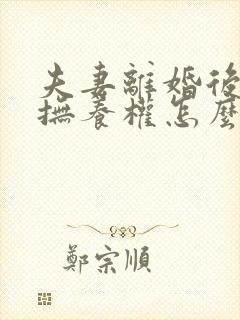 夫妻離婚後
撫養權怎麼
鄭宗順